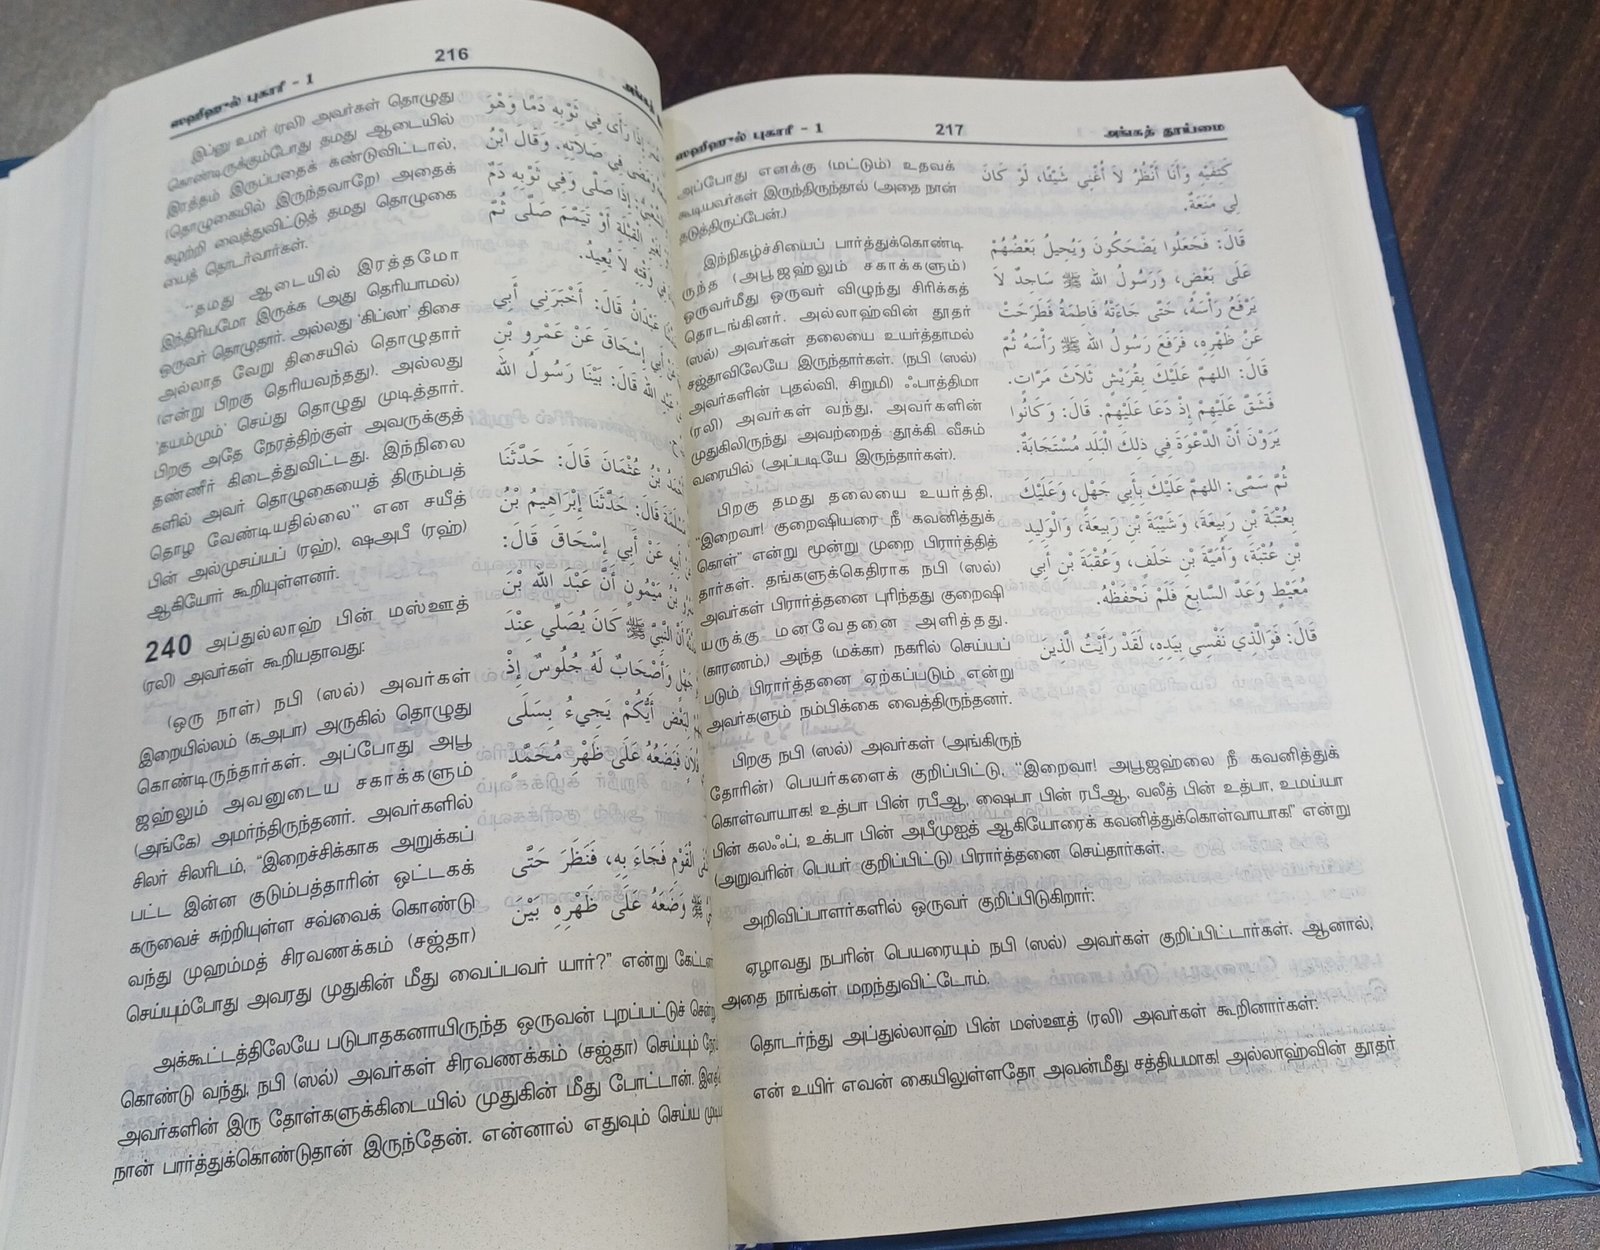 ஸஹீஹுல் புகாரீ - 1
216
இப்னு உமர் (ரலி) அவர்கள் தொழுது
கொண்டிருக்கும்போது தமது ஆடையில்
இரத்தம் இருப்பதைக் கண்டுவிட்டால்,
(தொழுகையில் இருந்தவாறே) அதைக்
கழற்றி வைத்துவிட்டுத் தமது தொழுகை
யைத் தொடர்வார்கள்.
"தமது ஆடையில் இரத்தமோ
இந்திரியமோ இருக்க (அது தெரியாமல்)
ஒருவர் தொழுதார். அல்லது 'கிப்லா' திசை
அல்லாத வேறு திசையில் தொழுதார்
(என்று பிறகு தெரியவந்தது). அல்லது
'தயம்மும்' செய்து தொழுது முடித்தார்.
பிறகு அதே நேரத்திற்குள் அவருக்குத்
தண்ணீர் கிடைத்துவிட்டது. இந்நிலை
களில் அவர் தொழுகையைத் திரும்பத்
தொழ வேண்டியதில்லை" என சயீத்
பின் அல்முசய்யப் (ரஹ்), ஷஅபீ (ரஹ்)
ஆகியோர் கூறியுள்ளனர்.
240 அப்துல்லாஹ் பின் மஸ்ஊத்
(ரலி) அவர்கள் கூறியதாவது:
(ஒரு நாள்) நபி (ஸல்) அவர்கள்
இறையில்லம் (கஅபா) அருகில் தொழுது
கொண்டிருந்தார்கள். அப்போது அபூ
ஜஹ்லும் அவனுடைய சகாக்களும்
(அங்கே) அமர்ந்திருந்தனர். அவர்களில்
சிலர் சிலரிடம், "இறைச்சிக்காக அறுக்கப்
பட்ட இன்ன குடும்பத்தாரின் ஒட்டகக்
கருவைச் சுற்றியுள்ள சவ்வைக் கொண்டு
வந்து முஹம்மத் சிரவணக்கம் (சஜ்தா)
செய்யும்போது அவரது முதுகின் மீது வைப்பவர் யார்?" என்று
அக்கூட்டத்திலேயே படுபாதகனாயிருந்த ஒருவன் புறப்பட்டுச்
கொண்டு வந்து, நபி (ஸல்) அவர்கள் சிரவணக்கம் (சஜ்தா) செய்யும்
அவர்களின் இரு தோள்களுக்கிடையில் முதுகின் மீது போட்டான்.
நான் பார்த்துக்கொண்டுதான் இருந்தேன். என்னால் எதுவும் செய்ய
إِذَا رَأَى فِي ثَوْبِهِ دَمًا وَهُوَ
فِي صَلَاتِهِ. وَقَالَ ابْنُ
إِذَا صَلَّى وَفِي ثَوْبِهِ دَمٌ
الْقِبْلَةِ أَوْ تَيَمَّمَ صَلَّى ثُمَّ
لَا يُعِيدُ.
عَبْدَانُ قَالَ: أَخْبَرَنِي أَبِي
أَبِي إِسْحَاقَ عَنْ عَمْرِو بْنِ
اللهِ قَالَ: بَيْنَا رَسُولُ اللهِ
بْنُ عُثْمَانَ قَالَ: حَدَّثَنَا
قَالَ: حَدَّثَنَا إِبْرَاهِيمُ بْنُ
عَنْ أَبِي إِسْحَاقَ قَالَ:
بْنُ مَيْمُونٍ أَنَّ عَبْدَ اللهِ بْنَ
أَنَّ النَّبِيَّ ﷺ كَانَ يُصَلِّي عِنْدَ
وَأَصْحَابٌ لَهُ جُلُوسٌ إِذْ
لِبَعْضٍ أَيُّكُمْ يَجِيءُ بِسَلَى
فَيَضَعُهُ عَلَى ظَهْرِ مُحَمَّدٍ
الْقَوْمِ فَجَاءَ بِهِ، فَنَظَرَ حَتَّى
ﷺ وَضَعَهُ عَلَى ظَهْرِهِ بَيْنَ
ஸஹீஹுல் புகாரீ - 1
217
அங்கத் தூய்மை
அப்போது எனக்கு (மட்டும்) உதவக்
கூடியவர்கள் இருந்திருந்தால் (அதை நான்
தடுத்திருப்பேன்.)
இந்நிகழ்ச்சியைப் பார்த்துக்கொண்டி
ருந்த (அபூஜஹ்லும் சகாக்களும்)
ஒருவர்மீது ஒருவர் விழுந்து சிரிக்கத்
தொடங்கினர். அல்லாஹ்வின் தூதர்
(ஸல்) அவர்கள் தலையை உயர்த்தாமல்
சஜ்தாவிலேயே இருந்தார்கள். (நபி (ஸல்)
அவர்களின் புதல்வி, சிறுமி) ஃபாத்திமா
(ரலி) அவர்கள் வந்து, அவர்களின்
முதுகிலிருந்து அவற்றைத் தூக்கி வீசும்
வரையில் (அப்படியே இருந்தார்கள்).
பிறகு தமது தலையை உயர்த்தி,
"இறைவா! குறைஷியரை நீ கவனித்துக்
கொள்" என்று மூன்று முறை பிரார்த்தித்
தார்கள். தங்களுக்கெதிராக நபி (ஸல்)
அவர்கள் பிரார்த்தனை புரிந்தது குறைஷி
யருக்கு மனவேதனை அளித்தது.
(காரணம்,) அந்த (மக்கா) நகரில் செய்யப்
படும் பிரார்த்தனை ஏற்கப்படும் என்று
அவர்களும் நம்பிக்கை வைத்திருந்தனர்.
பிறகு நபி (ஸல்) அவர்கள் (அங்கிருந்
தோரின்) பெயர்களைக் குறிப்பிட்டு, "இறைவா! அபூஜஹ்லை நீ கவனித்துக்
கொள்வாயாக! உத்பா பின் ரபீஆ, ஷைபா பின் ரபீஆ, வலீத் பின் உத்பா, உமய்யா
பின் கலஃப், உக்பா பின் அபீமுஐத் ஆகியோரைக் கவனித்துக்கொள்வாயாக!" என்று
(அறுவரின் பெயர் குறிப்பிட்டு) பிரார்த்தனை செய்தார்கள்.
அறிவிப்பாளர்களில் ஒருவர் குறிப்பிடுகிறார்:
ஏழாவது நபரின் பெயரையும் நபி (ஸல்) அவர்கள் குறிப்பிட்டார்கள். ஆனால்,
அதை நாங்கள் மறந்துவிட்டோம்.
தொடர்ந்து அப்துல்லாஹ் பின் மஸ்ஊத் (ரலி) அவர்கள் கூறினார்கள்:
என் உயிர் எவன் கையிலுள்ளதோ அவன்மீது சத்தியமாக! அல்லாஹ்வின் தூதர்
كَتِفَيْهِ وَأَنَا أَنْظُرُ لَا أُغْنِي شَيْئًا، لَوْ كَانَ
لِي مَنَعَةٌ.
قَالَ: فَجَعَلُوا يَضْحَكُونَ وَيُحِيلُ بَعْضُهُمْ
عَلَى بَعْضٍ، وَرَسُولُ اللهِ ﷺ سَاجِدٌ لَا
يَرْفَعُ رَأْسَهُ، حَتَّى جَاءَتْهُ فَاطِمَةُ فَطَرَحَتْ
عَنْ ظَهْرِهِ، فَرَفَعَ رَسُولُ اللهِ ﷺ رَأْسَهُ ثُمَّ
قَالَ: اللهمّ عَلَيْكَ بِقُرَيْشٍ ثَلَاثَ مَرَّاتٍ.
فَشَقَّ عَلَيْهِمْ إِذْ دَعَا عَلَيْهِمْ. قَالَ: وَكَانُوا
يَرَوْنَ أَنَّ الدَّعْوَةَ فِي ذلِكَ الْبَلَدِ مُسْتَجَابَةٌ.
ثُمَّ سَمَّى: اللهمّ عَلَيْكَ بِأَبِي جَهْلٍ، وَعَلَيْكَ
بِعُتْبَةَ بْنِ رَبِيعَةَ، وَشَيْبَةَ بْنِ رَبِيعَةَ، وَالْوَلِيدِ
بْنِ عُتْبَةَ، وَأُمَيَّةَ بْنِ خَلَفٍ، وَعُقْبَةَ بْنِ أَبِي
مُعَيْطٍ وَعَدَّ السَّابِعَ فَلَمْ نَحْفَظْهُ.
قَالَ: فَوَالَّذِي نَفْسِي بِيَدِهِ، لَقَدْ رَأَيْتُ الَّذِينَ